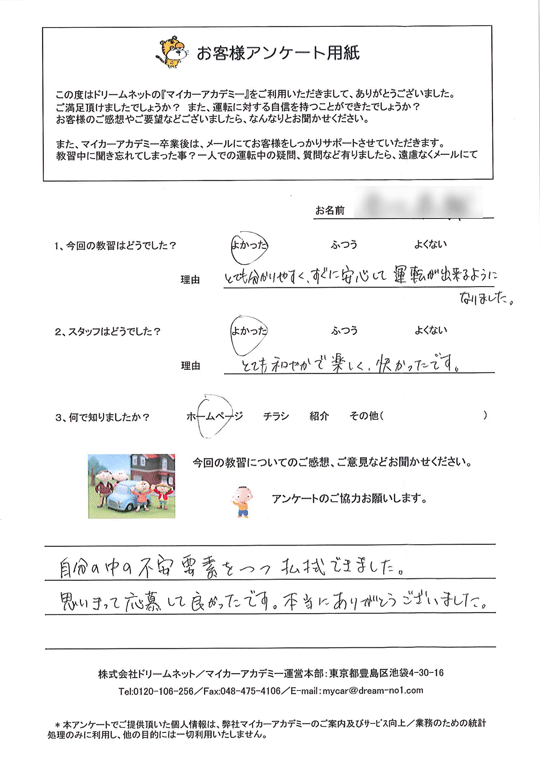 お客様アンケート用紙
この度はドリームネットの『マイカーアカデミー』をご利用いただきまして、ありがとうございました。
ご満足頂けましたでしょうか? また、運転に対する自信を持つことができたでしょうか?
お客様のご感想やご要望などございましたら、なんなりとお聞かせください。
また、マイカーアカデミー卒業後は、メールにてお客様をしっかりサポートさせていただきます。
教習中に聞き忘れてしまった事?一人での運転中の疑問、質問など有りましたら、遠慮なくメールにて
お名前
1、今回の教習はどうでした? よかった ふつう よくない
理由 とても分かりやすく、すぐに安心して運転が出来るように
なりました。
2、スタッフはどうでした? よかった ふつう よくない
理由 とても和やかで楽しく、快かったです。
3、何で知りましたか? ホームページ チラシ 紹介 その他( )
今回の教習についてのご感想、ご意見などお聞かせください。
アンケートのご協力お願いします。
自分の中の不安要素を 払拭できました。
思いきって応募して良かったです。本当にありがとうございました。
株式会社ドリームネット/マイカーアカデミー運営本部:東京都豊島区池袋4-30-16
Tel:0120-106-256/Fax:048-475-4106/E-mail:mycar@dream-no1.com
*本アンケートでご提供頂いた個人情報は、弊社マイカーアカデミーのご案内及びサービス向上/業務のための統計
処理のみに利用し、他の目的には一切利用いたしません。